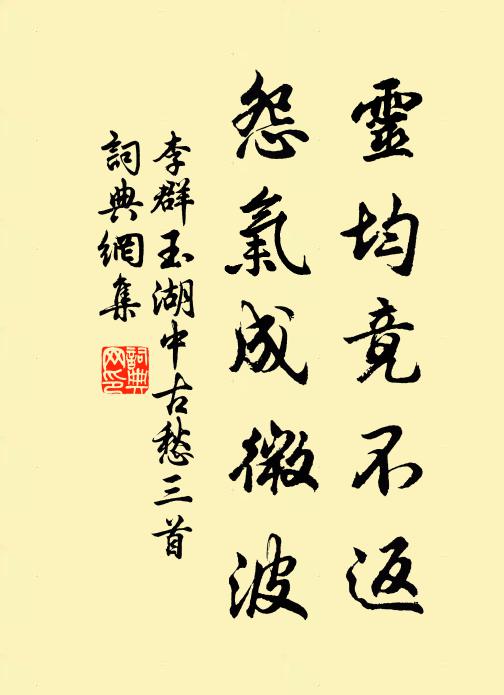 靈均竟不返
怨氣成微波
李群玉湖中古愁三首
詞典網集
詞典
网印